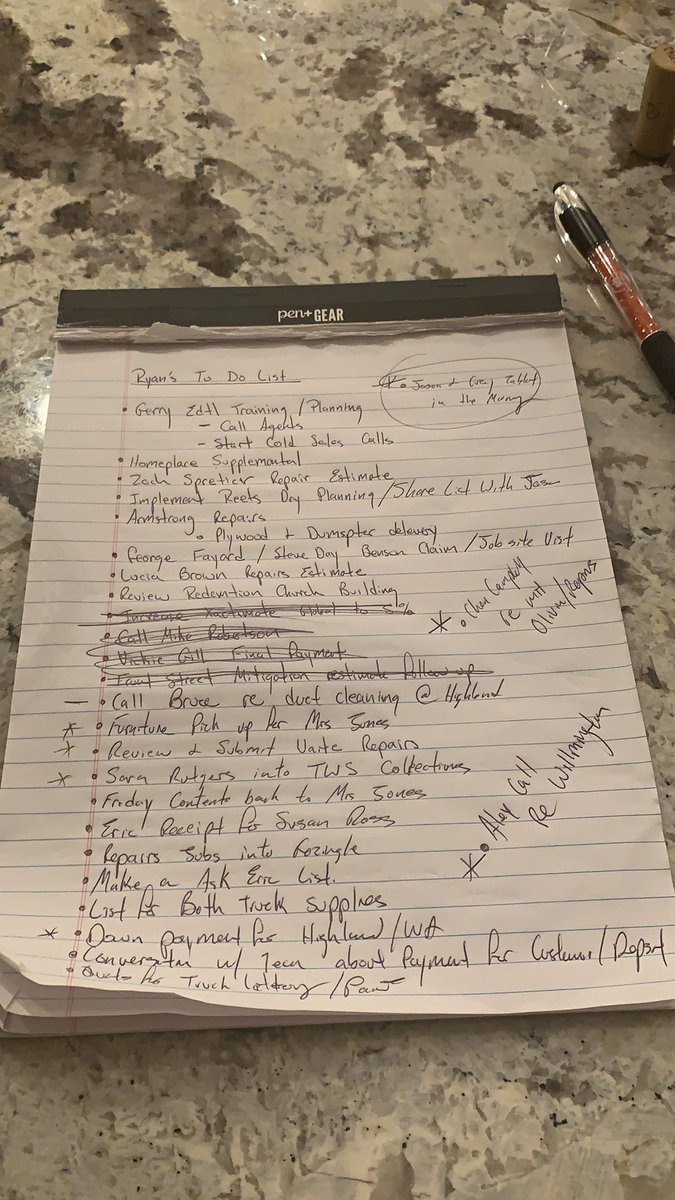 pen+ GEAR
Ryan's To Do List
* • Jason & Greg
in the
• Gerry Edtl Training / Planning
– Call Agents
– Start Cold Sales Calls
• Homeplace Supplemental
• Zach Repair Estimate
• Implement Reets Day Planning / Share List With Jason
• Armstrong Repairs
o Plywood & Dumspter delevery
• George Fayard / Steve Day Benson Claim / Job site Visit
• Lucia Brown Repairs Estimate
• Review Redemption Church Building
• Increase Xactimate Global to 5%
• Call Mike Robertson
• Vickie Gill Final Payment
• Street Mitigation estimate follow up
— • Call Bruce re duct cleaning @ Highland
* • Furniture Pick up for Mrs Jones
* • Review & Submit Repairs
* • Sara Rutgers into TWS Collections
• Friday Contents back to Mrs Jones
• Eric Receipt for Susan Ross
• Repairs Subs into
• Make a Ask Eric List.
• List for Both Truck Supplies
* • Down payment for Highland / WA
• Conversation w/ about Payment for Customer /
• Quote for Truck / Paint
* • Campbell
re
Repairs
* • Alex Call
Re Willmington